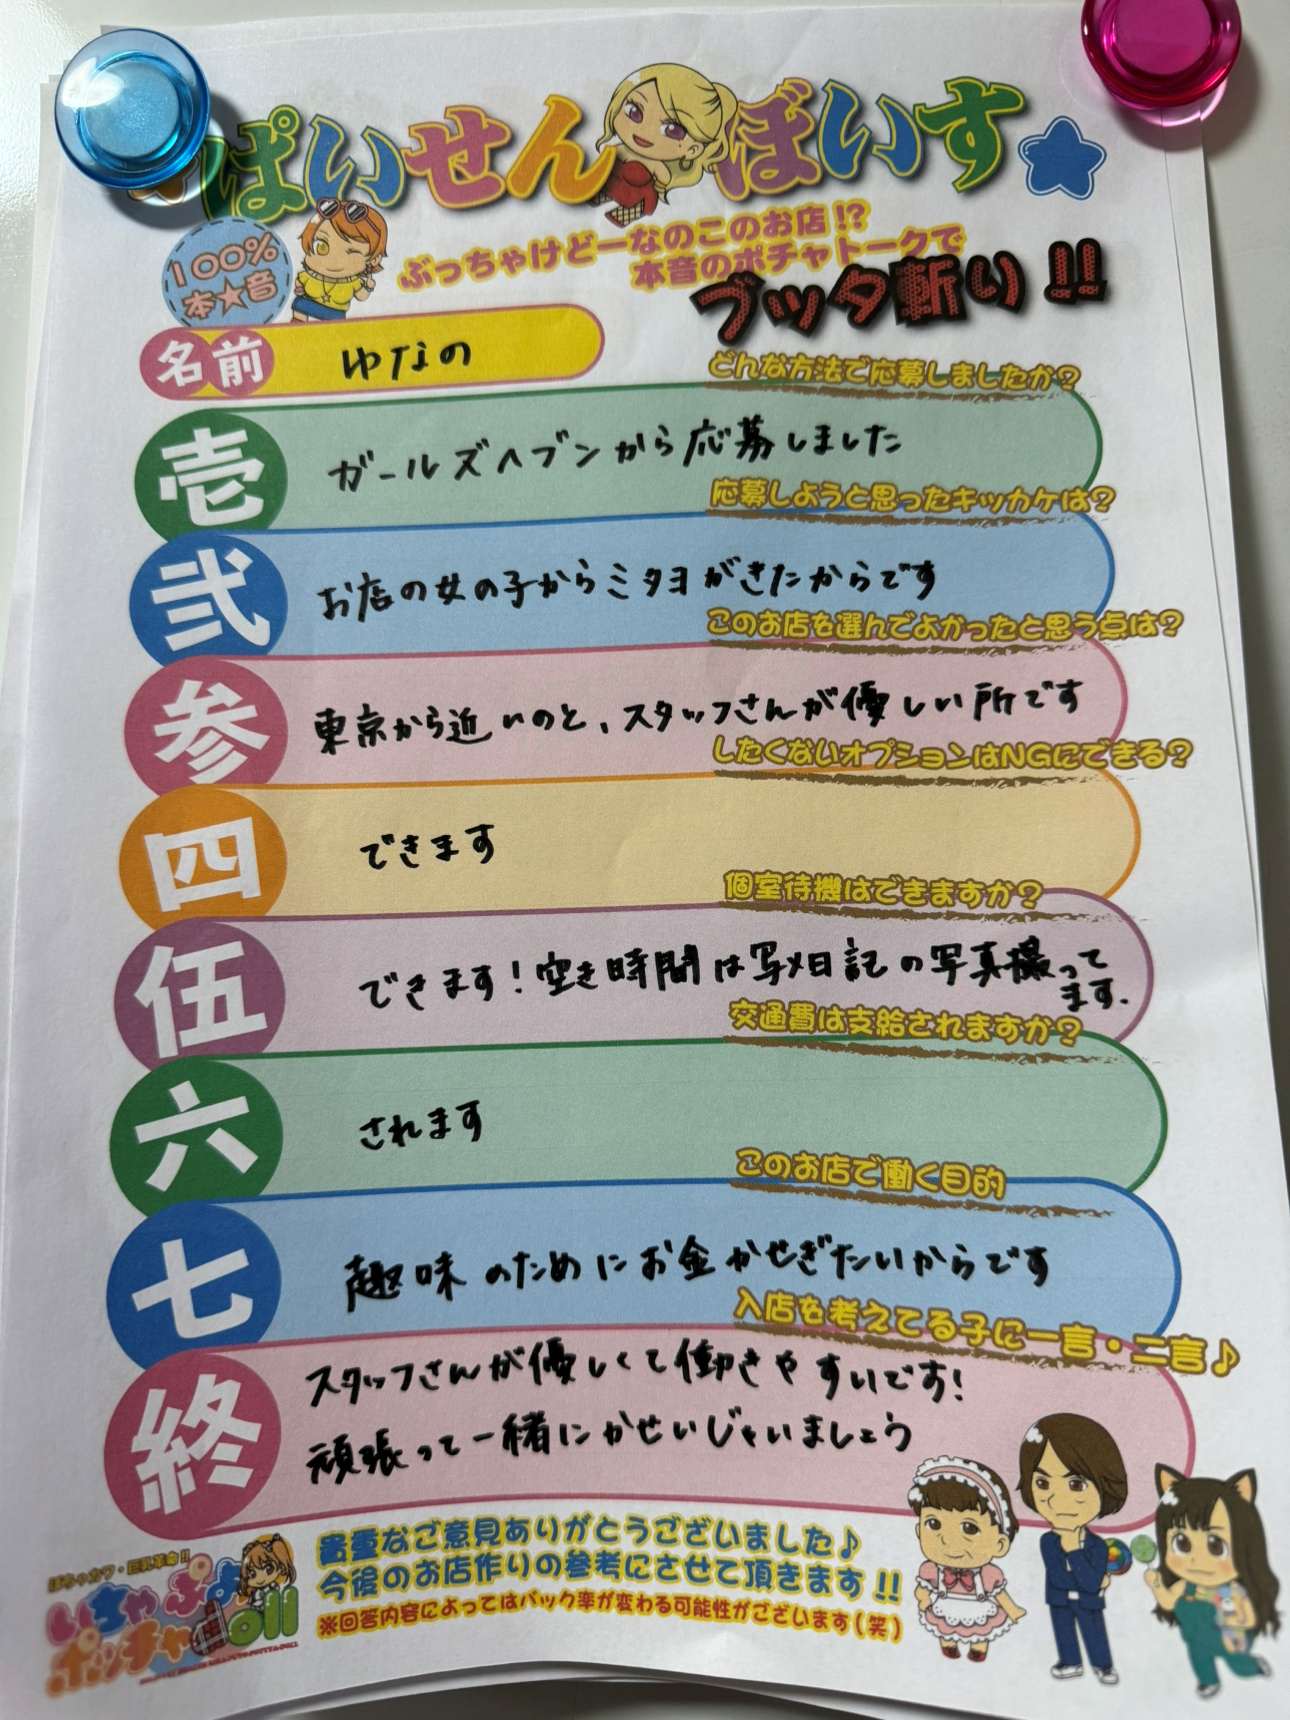 ぱいせんぼいす
100%
本★音
ぶっちゃけどーなのこのお店!?
本音のポチャトークで
ブッタ斬り!!
名前
ゆなの
どんな方法で応募しましたか?
壱
ガールズヘブンから応募しました
応募しようと思ったキッカケは?
弐
お店の女の子からミタヨがきたからです
このお店を選んでよかったと思う点は?
参
東京から近いのと、スタッフさんが優しい所です
したくないオプションはNGにできる?
四
できます
個室待機はできますか?
伍
できます!空き時間は写メ日記の写真撮って
ます.
交通費は支給されますか?
六
されます
このお店で働く目的
七
趣味のためにお金かせぎたいからです
入店を考えてる子に一言・二言♪
終
スタッフさんが優しくて働きやすいです!
頑張って一緒にかせいじゃいましょう
貴重なご意見ありがとうございました♪
今後のお店作りの参考にさせて頂きます!!
※回答内容によってはバック率が変わる可能性がございます(笑)
ぽちゃカワ・巨乳革命!!
いちゃぷよ
ポッチャdoll